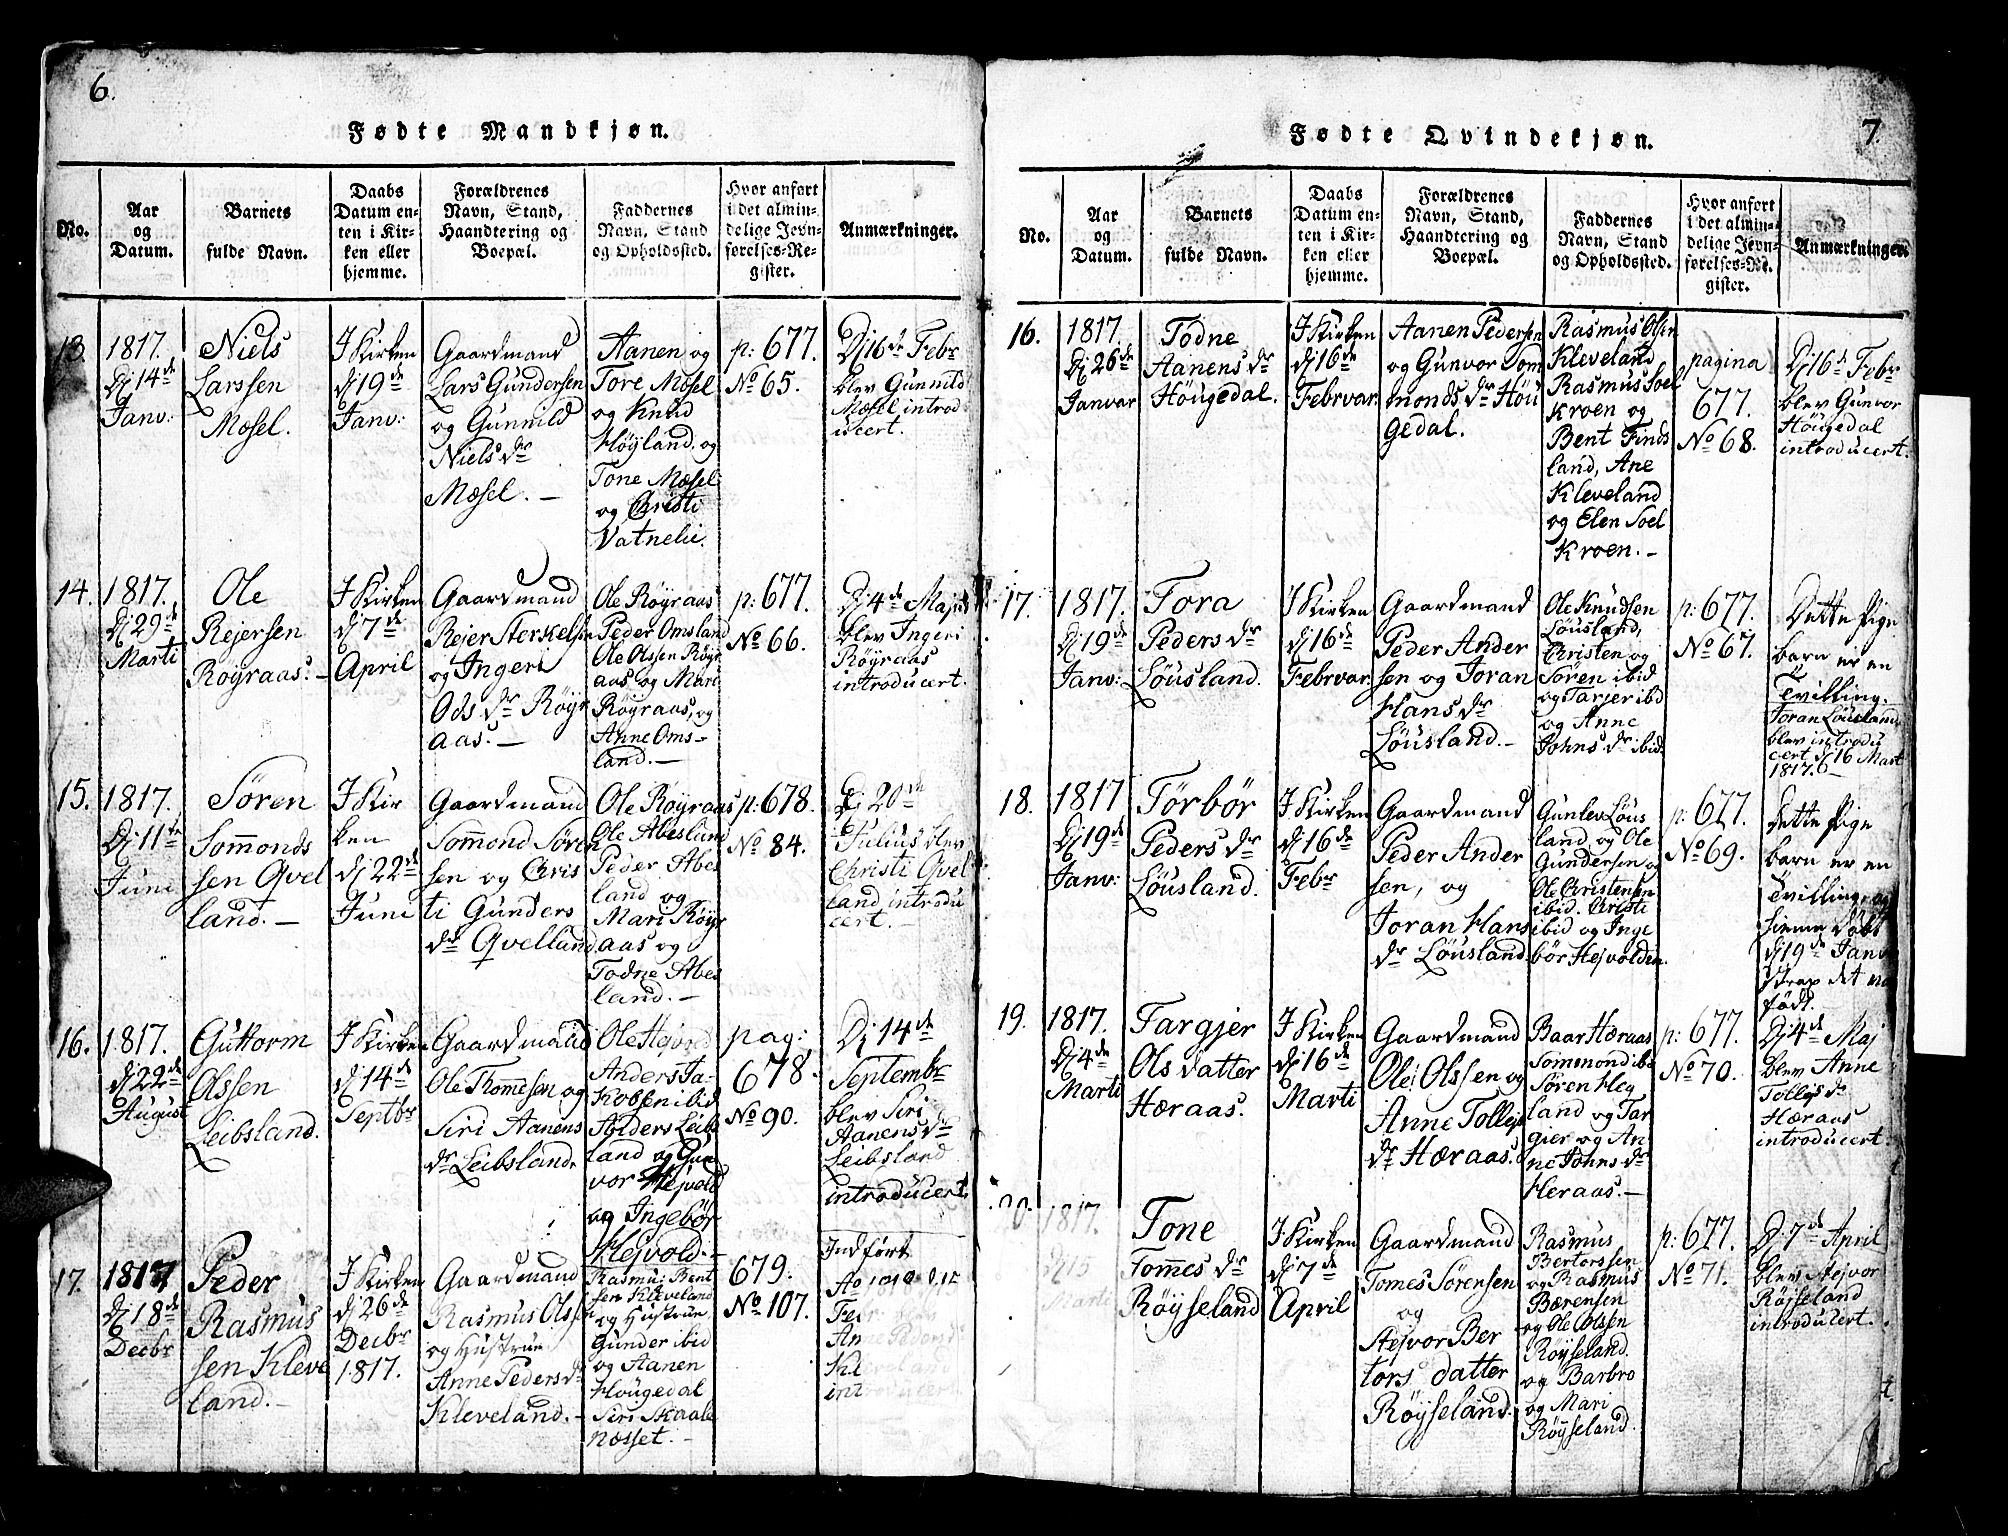 6.
Fødte Mandkjøn.
No.
Aar
og
Datum.
Barnets
fulde Navn.
Daabs
Datum en-
ten i Kir-
ken eller
hjemme.
Forældrenes
Navn, Stand,
Haandtering og
Boepæl.
Faddernes
Navn, Stand
og Opholdssted.
Hvor anført
i det almin-
delige Jevn-
førelses-Re-
gister.
Anmærkninger.
13.
1817.
Dj 14de
Janv:
Niels
Larssen
Mosel.
I Kirken
dj 19de
Janv:
Gaardmand
Lars Gundersen
og Gunnild
Niels dr
Mæsel. —
Aanen og
Tore Mosel
og Knud
Høyland og
Tone Mæsel
og Christi
Vatnelie.
p: 677.
No 65.
Dj 16de Febr
blev Gunnild
Mæsel introd
ucert.
14.
1817.
Dj 29de
Marti
Ole
Rejersen
Röyraas. —
I Kirken
dj 7de
April
Gaardmand
Rejer Sterkelsen
og Ingeri
Ods dr Röyr
aas. —
Ole Röyraas
Peder Omsland
Ole Olssen Röyr
aas og Mari
Röyraas, og
Anne Oms-
land. —
p: 677.
No 66.
Dj 4de Maji
blev Ingeri
Röyraas
introducert.
15.
1817.
Dj 11te
Juni
Sören
Somonds
sen Qvel
land. —
I Kir
ken
dj 22de
Juni
Gaardmand
Somond Sören
sen og Chris
ti Gunders
dr Qvelland
Ole Röyraas
Ole Abesland
Peder Abes
land og
Mari Röyr
aas og
Todne Abes
land. —
p: 678.
No 84.
Dj 20de
Julius blev
Christi Qvel
land introdu
cert. —
16.
1817.
dj 22de
August
Guttorm
Olssen
Leibsland.
I Kirken
dj 14de
Septbr
Gaardmand
Ole Thomesen og
Siri Aanens
dr Leibsland.
Ole Hejvold
Anders Ja-
kobsen ibid
Anders Leibs
land og Gun
vor Hejvold
og Ingebör
Hejvold. —
pag:
678.
No 90.
Dj 14de
Septembr
blev Siri
Aanens dr
Leibsland
introducert
17.
1817
Dj 18de
Decbr
Peder
Rasmus
sen Kleve
land. —
I Kirken
dj 26de
Decbr
1817.
Gaardmand
Rasmus Olssen
og Hustrue
Anne Peders dr
Kleveland. —
Rasmus Bent
sen Kleveland
og Hustrue
Gunder ibid
og Aanen
Hougedal
Siri Skaale
næsset. —
679.
No 107.
Indfört
Ao 1818 d. 1te
7.
Fødte Qvindekjøn.
No.
Aar
og
Datum.
Barnets
fulde Navn.
Daabs
Datum en-
ten i Kir-
ken eller
hjemme.
Forældrenes
Navn, Stand,
Haandtering og
Boepæl.
Faddernes
Navn, Stand
og Opholdssted.
Hvor anført
i det almin-
delige Jevn-
førelses-Re-
gister.
Anmærkninger.
16.
1817.
Dj 26de
Janvar
Todne
Aanens dr
Höugedal.
I Kirken
dj 16de
Febrvar
Aanen Pedersen
og Gunvor Som
monds dr Höu
gedal.
Rasmus Olsen
Kleveland
Rasmus Soel
Kroen og
Bent Finds
land, Ane
Kleveland
og Elen Soel
Kroen. —
pagina
677.
No 68.
Dj 16de Febr
blev Gunvor
Höugedal
introducert.
17.
1817.
Dj 19de
Janv:
Tora
Peders dr
Löusland.
I Kirken
dj 16de
Febrvar
Gaardmand
Peder Ander
sen og Joran
Hans dr
Löusland. —
Ole Knudsen
Löusland,
Christen og
Sören ibid
og Tarjer ibid
og Anne
Johns dr ibid
p: 677.
No 67.
Dette Pige
barn er en
Tvilling.
Joran Löusland
blev introdu
cert d 16 Mart
1817.
18.
1817
Dj 19de
Janv:
Törbör
Peders dr
Löusland.
I Kirken
dj 16de
Febr
Gaardmand
Peder Ander
sen, og
Joran Hans
dr Löusland
Gunlev Löus
land og Ole
Gundersen og
Ole Christensen
ibid. Christi
ibid og Inge
bör Hejvolden.
p: 677.
No 69.
Dette Pige
barn er en
Tvilling, og
hjemme döbt
dj 19de Janv
strax det va
födt.
19.
1817.
Dj 4de
Marti
Targjer
Ols datter
Hæraas.
I Kirken
dj 16de
Marti
Gaardmand
Ole Olssen og
Anne Tollejs
dr Hæraas.
Baar Hæraas
Sommond ibd
Sören Heg
land og Tar
gier og An
ne Johns dr
Heraas. —
p: 677.
No 70.
Dj 4de Maj
blev Anne
Tollejs dr
Hæraas
introducert
20.
1817.
Tone
Tomes dr
Röyseland
I Kirken
dj 7de
April
Gaardmand
Tomes Sörensen
og
Hejvor Ber
tors datter
Röyseland.
Rasmus
Bertorssen
og Rasmus
Bærensen
og Ole Olsen
Röyseland.
og Barbro
og Mari
Röyseland.
p: 677.
No 71.
D. 7de April
blev Hejvor
Röjseland
introducert.